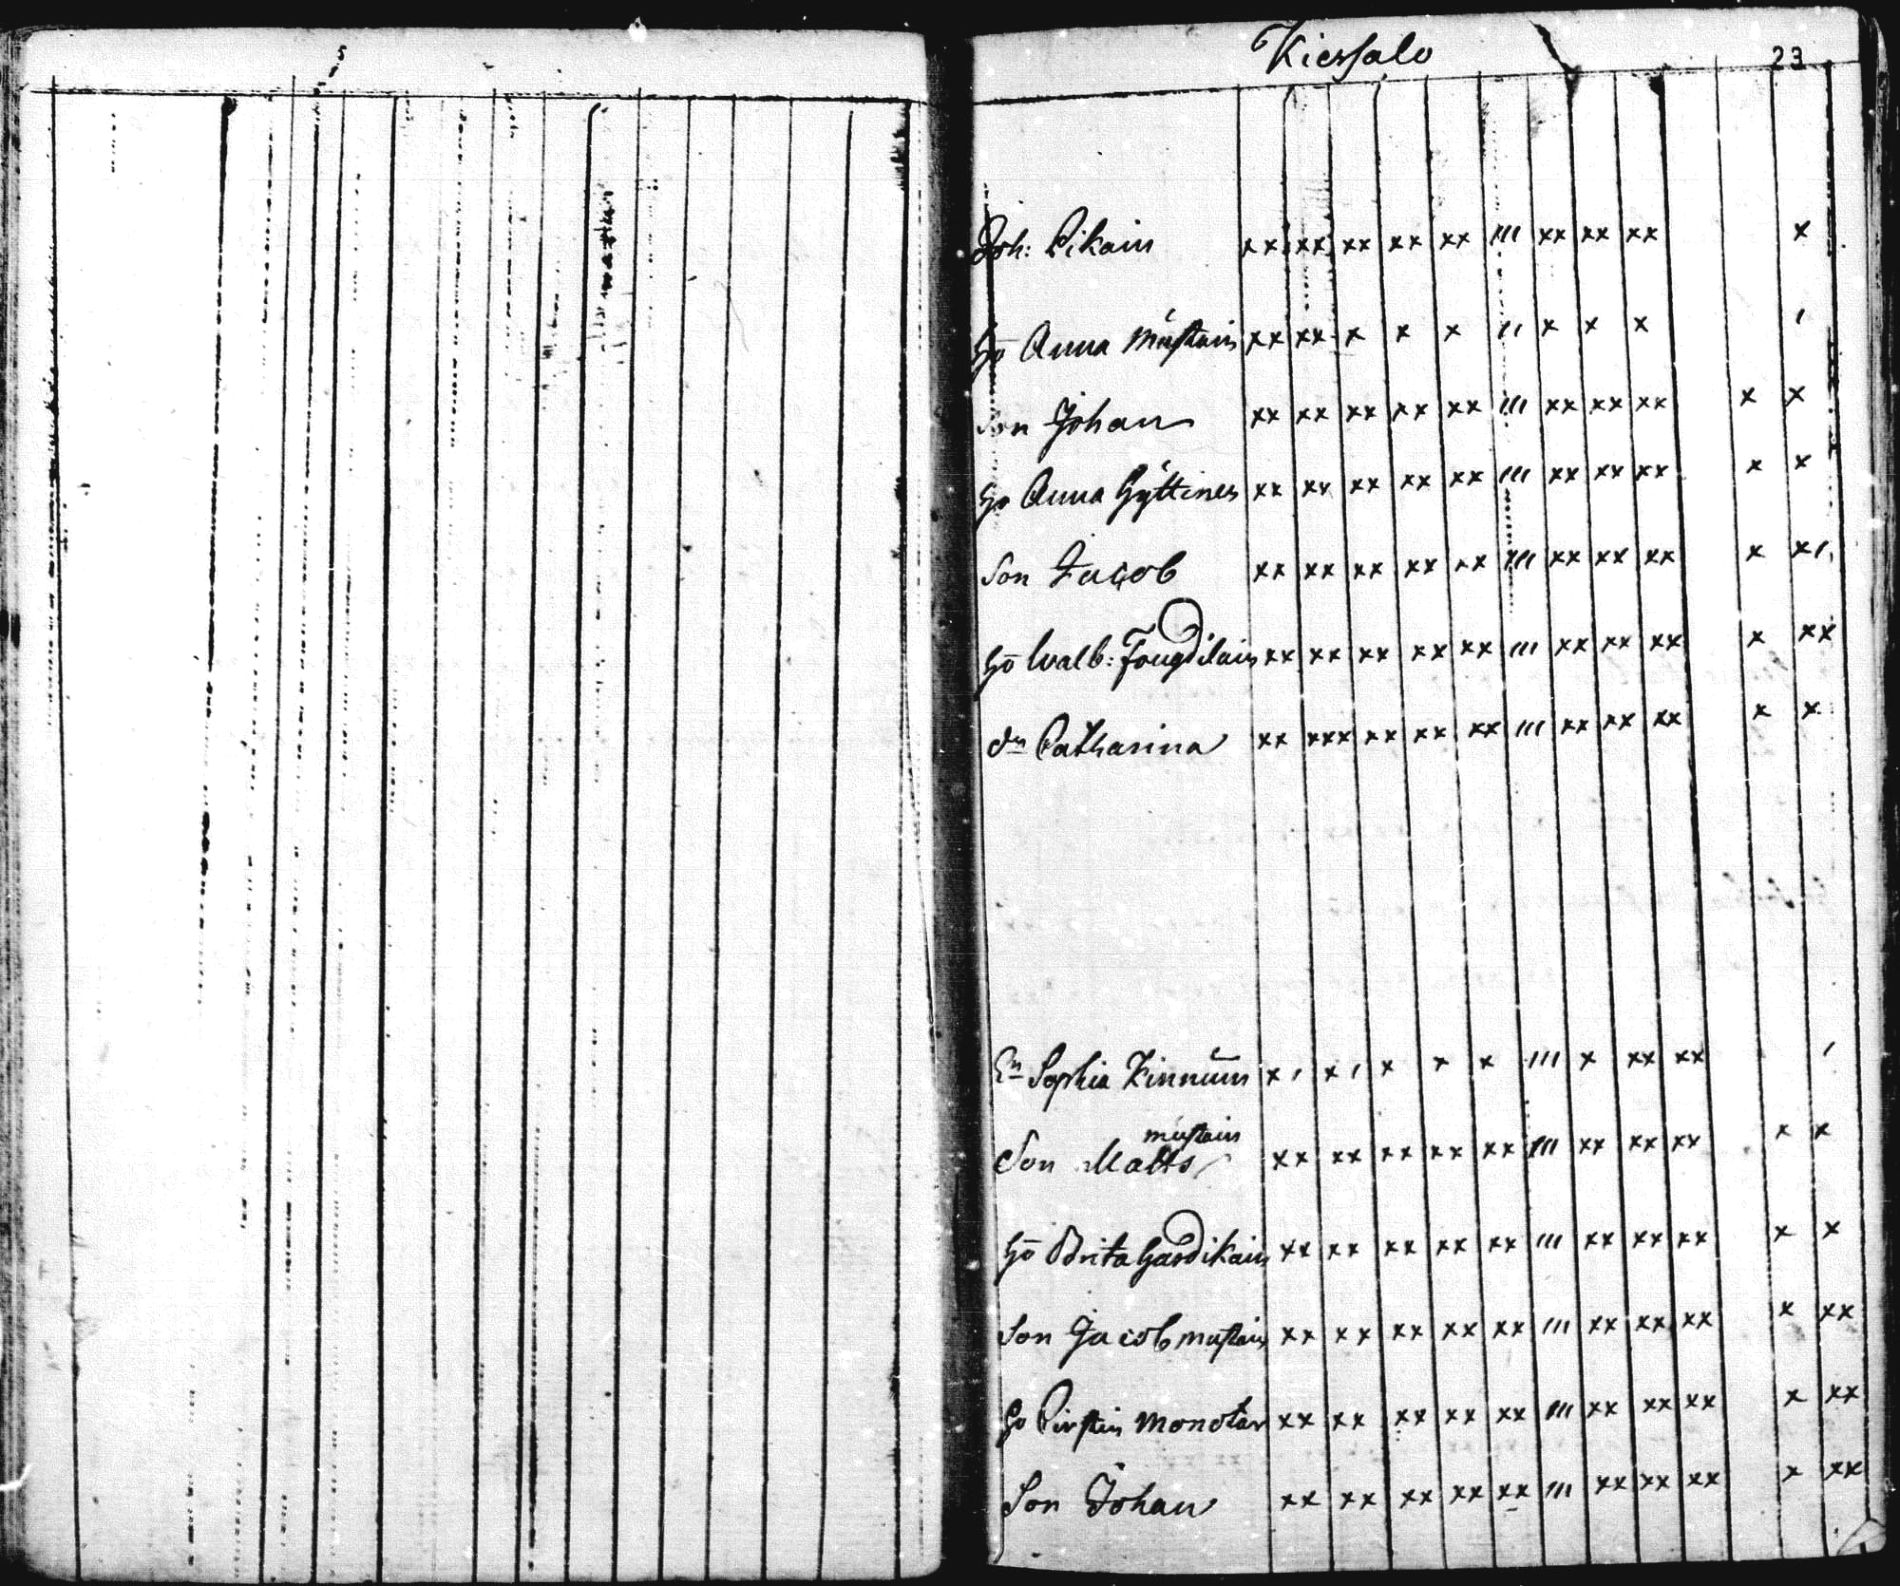 Kiersalo 23
Joh: Pikain xx xx xx xx xx ııı xx xx xx x
Ho Anna Mustain xx xx x x x ıı x x x ı
Son Johan xx xx xx xx xx ııı xx xx xx x x
Ho Anna Hyttinen xx xx xx xx xx ııı xx xx xx x x
Son Jacob xx xx xx xx xx ııı xx xx xx x xı
Ho Walb: Fougdilain xx xx xx xx xx ııı xx xx xx x xx
dr Catharina xx xxx xx xx xx ııı xx xx xx x x
En Sophia Kinnuin xı xı x x x ııı x xx xx ı
mustain
Son Matts xx xx xx xx xx ııı xx xx xx x x
Ho Brita Hardikain xx xx xx xx xx ııı xx xx xx x x
Son Jacob mustain xx xx xx xx xx ııı xx xx xx x xx
Ho Kirstin Monotar xx xx xx xx xx ııı xx xx xx x xx
Son Johan xx xx xx xx xx ııı xx xx xx x xx